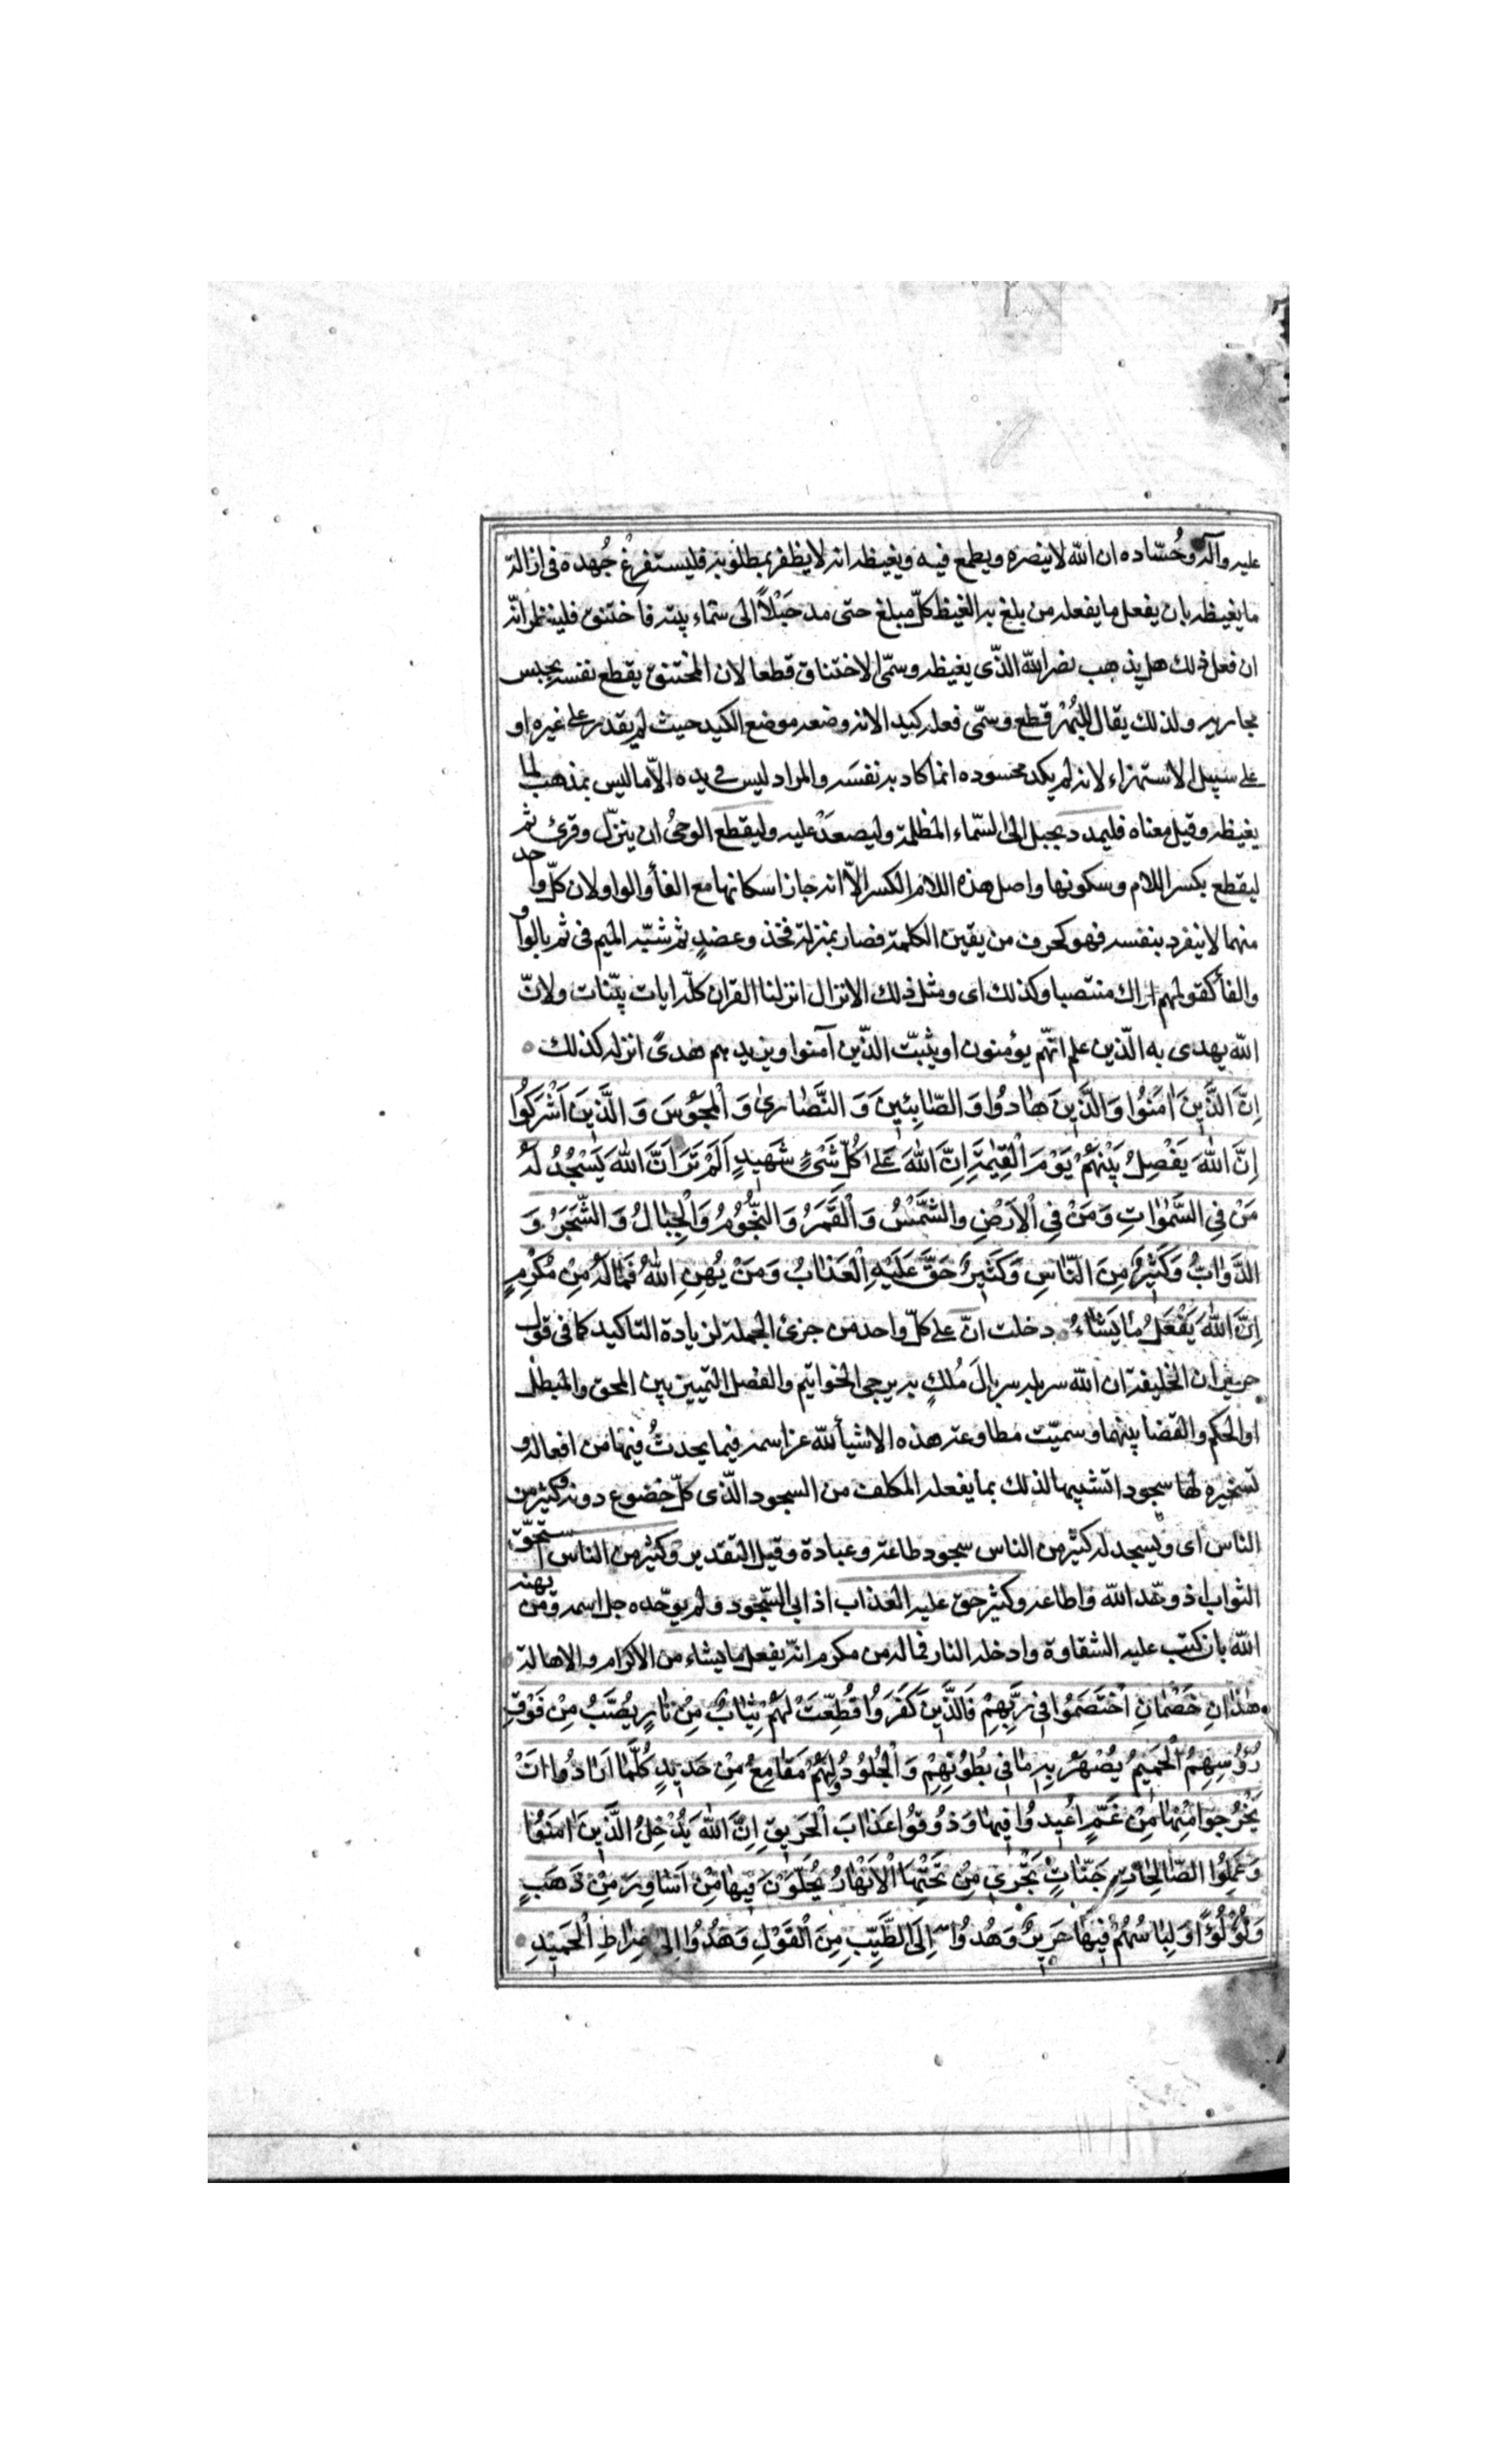 عليه وآله وحُسّاده ان الله لا ينصره ويطمع فيه ويغيظه انه لا يظفر بمطلوبه فليستفرغ جُهده فى ازالة
ما يغيظه بان يفعل ما يفعله من بلغ به الغيظ كلّ مبلغ حتى مد حَبْلاً الى سماء بيته فاختنق فلينظر انّه
ان فعل ذلك هل يذهب نصر الله الذّى يغيظه وسمّى الاختناق قطعا لان المختنق يقطع نفسه بحبس
مجاريه ولذلك يقال للبُهْر قطع وسمّى فعله كيدا لانه وضعه موضع الكيد حيث لم يقدر على غيره او
على سبيل الاستهزاء لانه لم يكد محسوده انما كاد به نفسَه والمراد ليس فى يده الاّ ما ليس بمذهب لما
يغيظه وقيل معناه فليمدد بحبل الى السّماء المظلمة وليصعَدْ عليه وليقطع الوحىُ ان ينزّل وقرئ ثم
ليقطع بكسر اللام وسكونها واصل هذه اللام الكسر الاّ انه جاز اسكانها مع الفأ والواو لان كلّ واحد
منهما لا ينفرد بنفسه فهو كحرف من يقين الكلمة فصار بمنزلة فخذ وعضدٍ ثم شبّه الميم فى ثم بالواو
والفأ كقولهم اراك منتصبا وكذلك اى ومثل ذلك الانزال انزلنا القران كلّه ايات بيّنات ولانّ
الله يهدى به الّذين علم انّهم يؤمنون او يثبّت الذّين آمنوا ويزيدهم هدىً انزله كذلك
اِنَّ الَّذَينَ اٰمَنُوُا وَالَّذَينَ هٰادُوُا وَالصّٰابِئينَ وَالنَّصٰارىٰ وَالْمَجُوُسَ وَالَّذَينَ اَشْرَكُوُا
اِنَّ اللهَ يَفْصِلُ بَيْنَهُمْ يَوْمَ الْقِيٰمَةِ اِنَّ اللهَ عَلىٰ كُلِّ شَىْءٍ شَهَيدٍ اَلَمْ تَرَ اَنَّ اللهَ يَسْجُدُ لَهُ
مَنْ فِى السَّمٰوٰاتِ وَمَنْ فِى الْاَرْضِ والشَّمْسُ وَالْقَمَرُ وَالنُّجُوُمُ وَالْجِبٰالُ وَالشَّجَرُ وَ
الدَّوٰابُّ وَكَثيرٌ مِنَ النّٰاسِ وَكَثيرٌ حَقَّ عَلَيْهِ الْعَذٰابُ وَمَنْ يُهِنِ اللهُ فَمٰا لَهُ مِنْ مُكْرِمٍ
اِنَّ اللهَ يَفْعَلُ مٰا يَشٰاءُ دخلت انّ على كلّ واحد من جزئ الجملة لزيادة التاكيد كما فى قول
جرير ان الخليفة ان الله سربله سربالَ مُلكٍ به يرجى الخواتيم والفصل التمييز بين المحق والمبطل
او الحكم والقضا بينهما وسميّت مطاوعة هذه الاشيأ لله عز اسمه فيما يحدثُ فيها من افعاله و
تسخيره لها سجودا تشبيها لذلك بما يفعله المكلف من السجود الذّى كلّ خضوع دونه وكثير من
الناس اى ويسجد له كثير من الناس سجود طاعة وعبادة وقيل التقدير وكثير من الناس استحقّ
الثواب اذ وحّد الله واطاعه وكثير حق عليه العذاب اذ ابى السّجود ولم يوحّده جل اسمه ومن يهنه
الله بان كتب عليه الشقاوة وادخله النار فما له من مكرم انّه يفعل ما يشاء من الاكرام والاهانة
هٰذٰانِ خَصْمٰانِ اخْتَصَمَوُا فى رَبِّهِمْ فَالَّذَينَ كَفَرَوُا قُطِّعَتْ لَهُمْ ثِيٰابٌ مِنْ نٰارٍ يُصَبُّ مِنْ فَوْقِ
رُؤُسِهِمُ الْحَميمُ يُصْهَرُ بِهِ مٰا فى بُطُوُنِهِمْ وَالْجُلُوُدُ وَلَهُمْ مَقٰامِعُ مِنْ حَديدٍ كُلَّمٰا اَرٰادُوُا اَنْ
يَخْرُجوُا مِنْهٰا مِنْ غَمٍّ اُعيدوُا فيهٰا وَذوُقوُا عَذٰابَ الْحَريقِ اِنَّ اللهَ يُدْخِلُ الَّذَينَ اٰمَنَوُا
وَعَمِلُوا الصّٰالِحٰاتِ جَنّٰاتٍ تَجْرى مِنْ تَحْتِهَا الْاَنْهٰارُ يُحَلَّوْنَ فيهٰا مِنْ اَسٰاوِرَ مِنْ ذَهَبٍ
وَلُؤْلُؤًا وَلِبٰاسُهُمْ فيهٰا حَريرٌ وَهُدُوُا اِلَى الطَّيِّبِ مِنَ الْقَوْلِ وَهُدُوُا اِلىٰ صِرٰاطِ الْحَميدِ